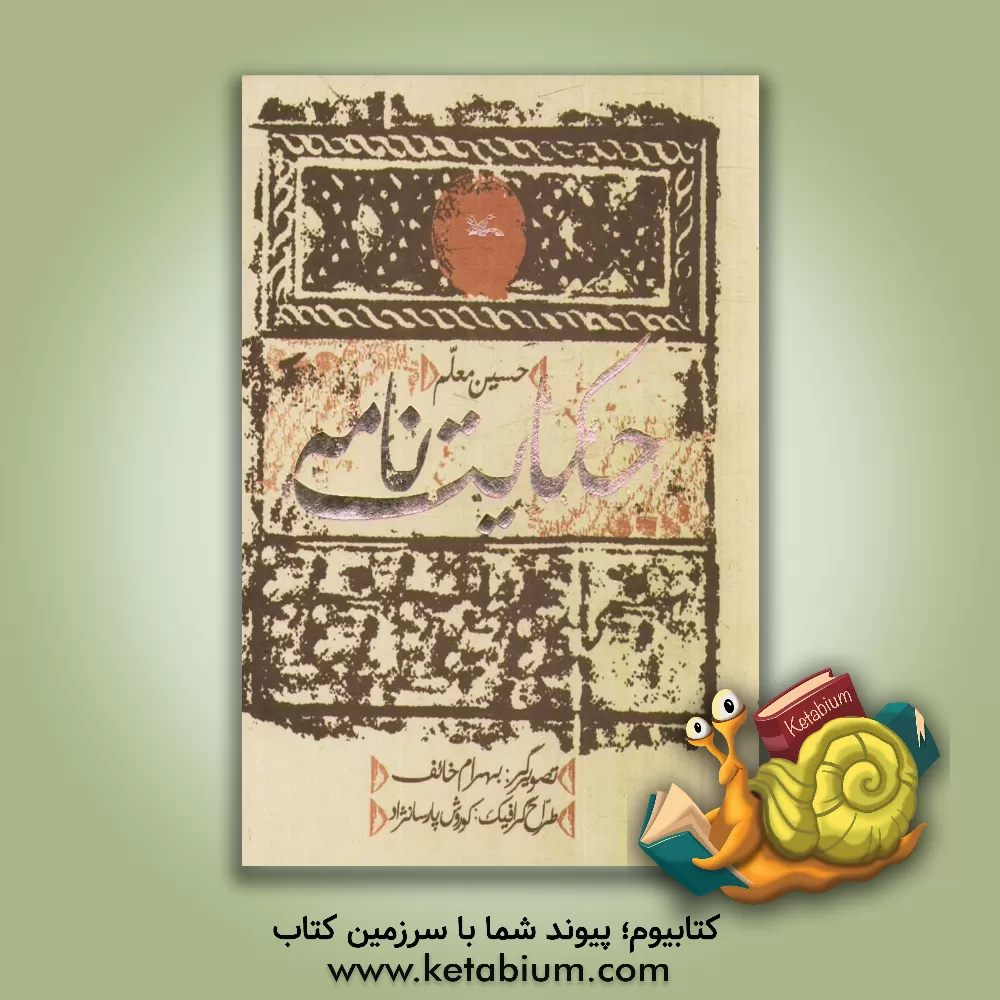 حسین معلّم
حکایت نامه
تصویرگر: بهرام خائف
طراح گرافیک: کوروش پارسانژاد
Ketabium
کتابیوم؛ پیوند شما با سرزمین کتاب
www.ketabium.com